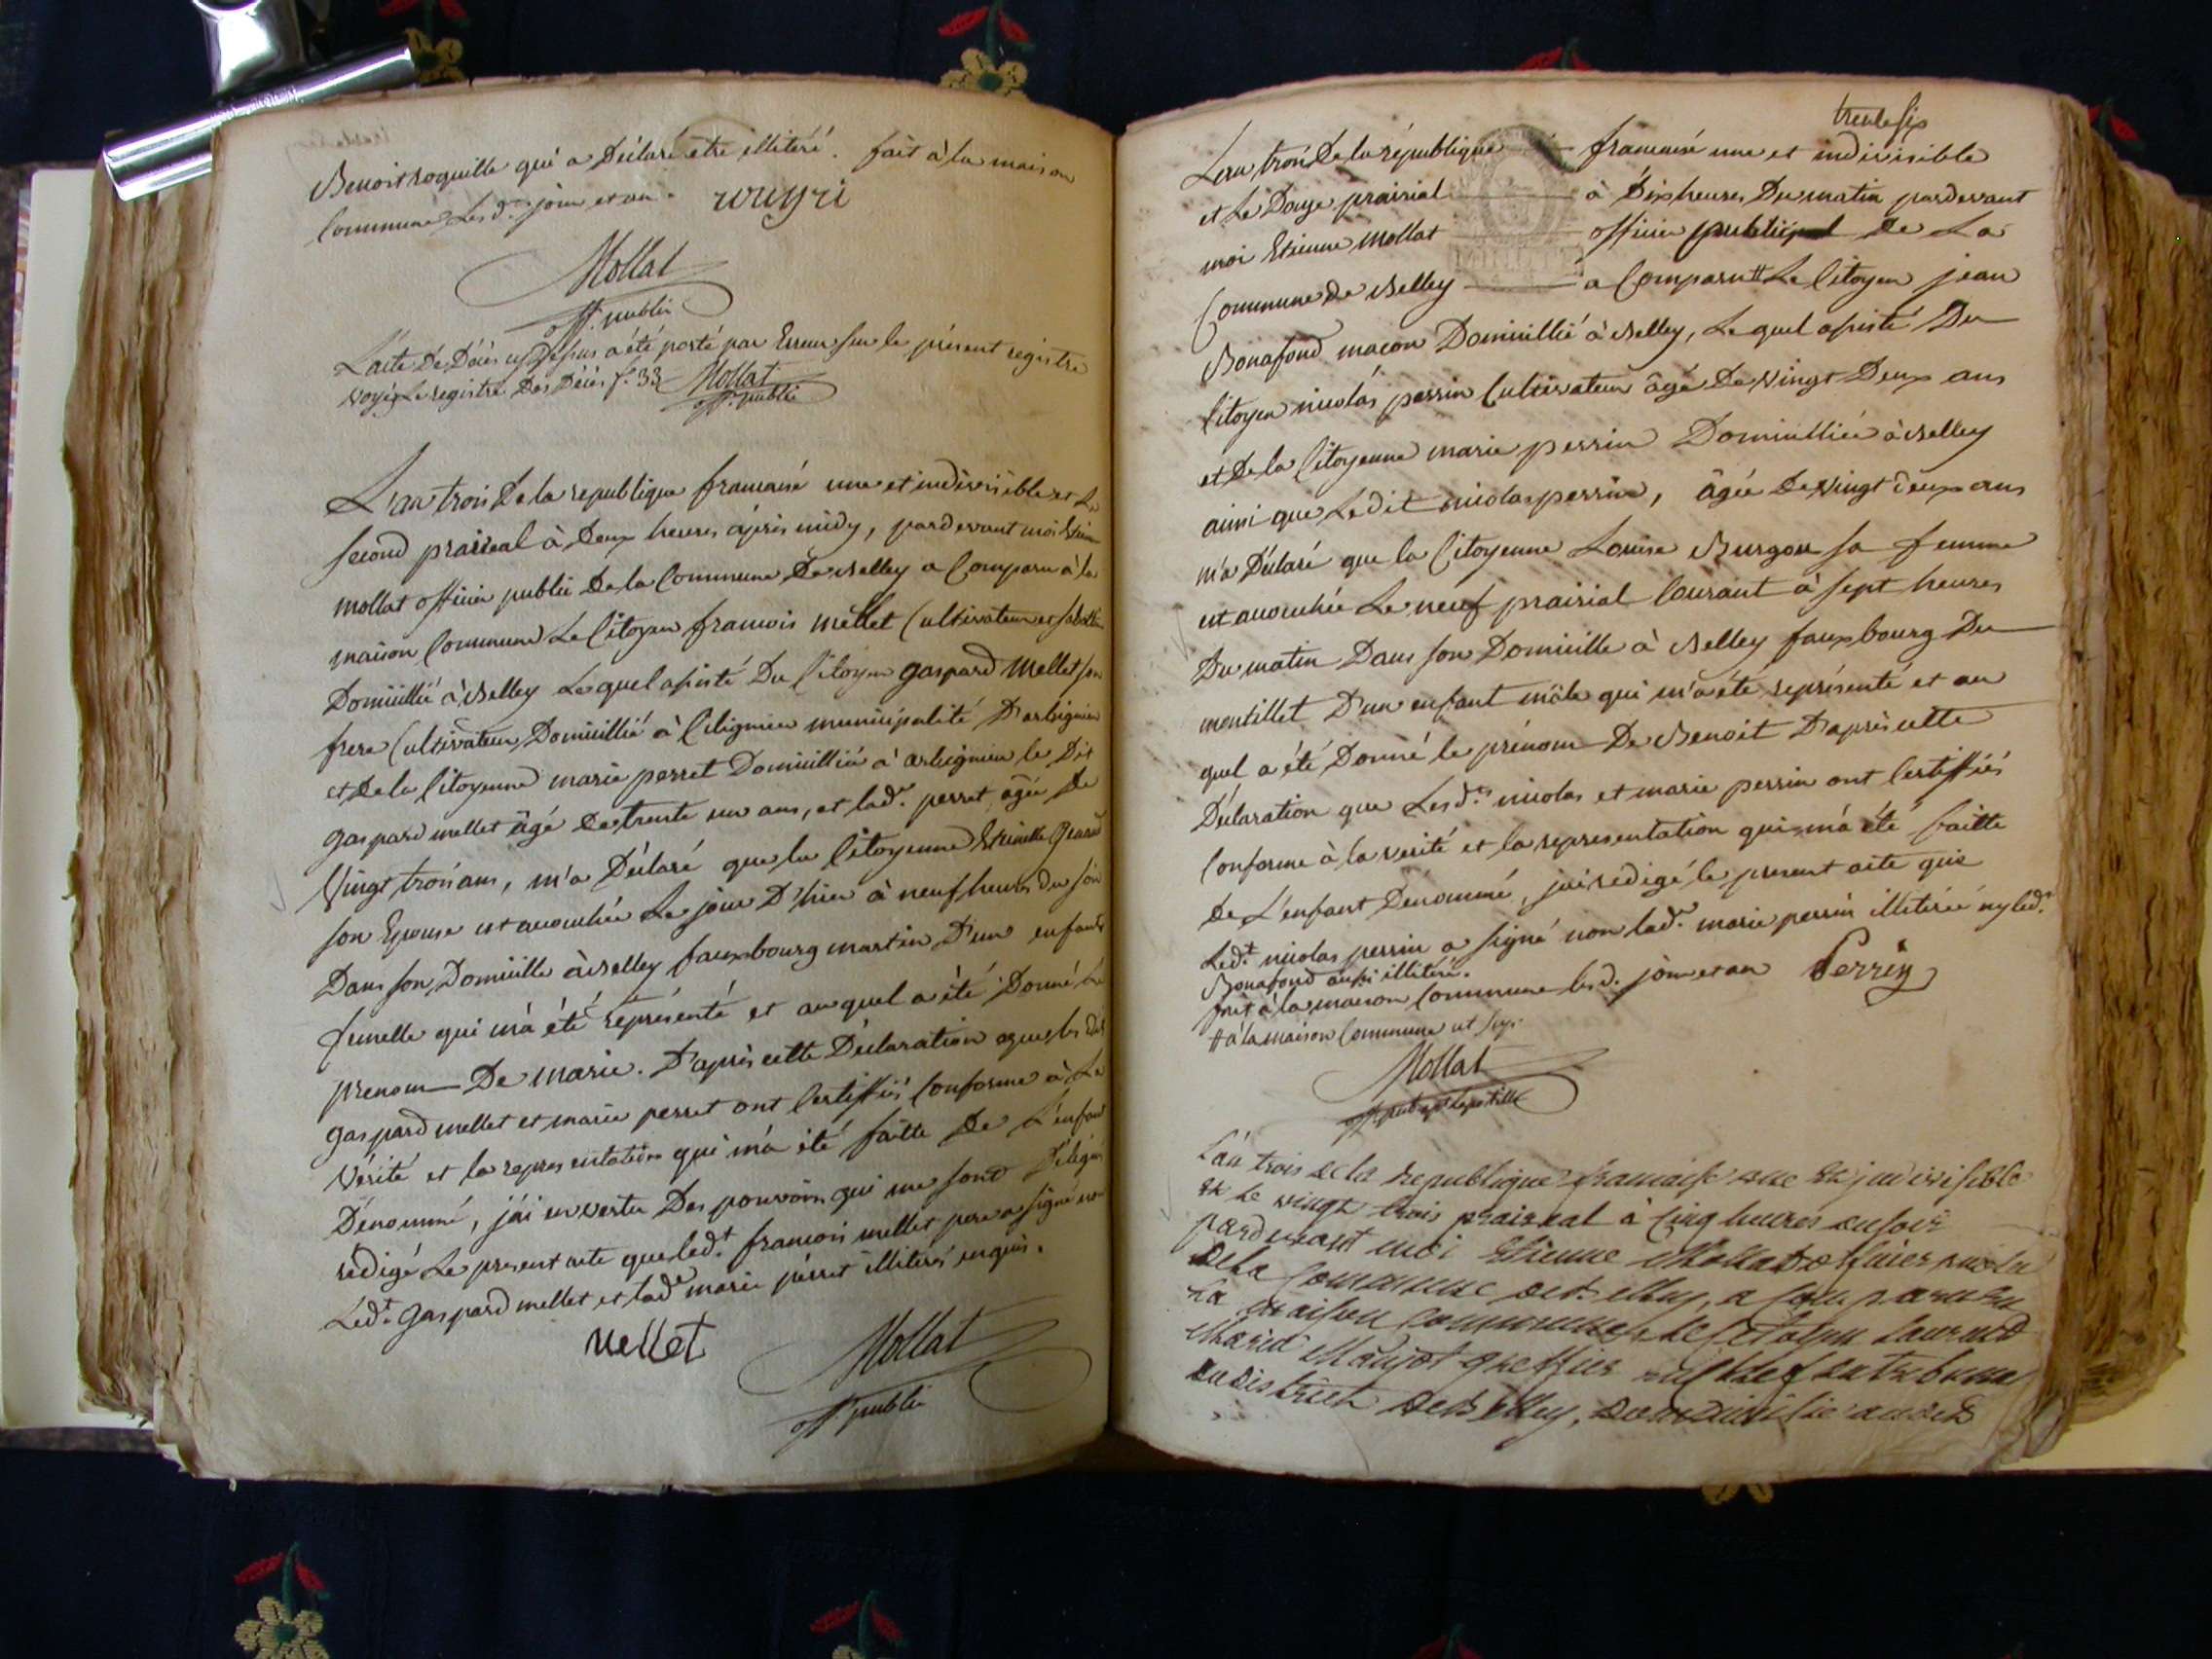 Benoit roquille qui a Déclaré etre illiteré. fait à la maison
Commune Lesd.ts jour et an. rougri
Mollat
off. public
L'acte De Décès cy Dessus a été porté par Erreur sur le présent registre
voyez Le registre Des Décès f.° 33 Mollat
off. public
L'an trois De la republique francaise une et indivisible et Le
second praireal à Deux heures après midy, pardevant moi Etienne
mollat officier public De la Commune De Belley a Comparu à la
maison Commune Le Citoyen francois mellet Cultivateur et
Domicillié à Belley Lequel assisté Du Citoyen gaspard Mellet son
frere Cultivateur Domicillié à Cilignieu municipalité D'arbignieu
et De la Citoyenne marie perret Domicilliée à arbignieu le Dit
gaspard mellet âgé De trente un ans, et lad.e perret âgée De
Vingt trois ans, m'a Déclaré que la Citoyenne Etiennette
son Epouse est accouchée Le jour D'hier à neuf heures du soir
Dans son Domicille à Belley fauxbourg martin D'un enfant
femelle qui m'a été représenté et au quel a été Donné Le
prenom De Marie. D'après cette Déclaration que les dits
gaspard mellet et marie perret ont Certiffiés Conforme à La
Vérité et la representation qui m'a été faitte De L'enfant
Dénommé, j'ai en vertu Des pouvoirs qui me sont Délégués
rédigé Le present acte que led.t francois mellet pere a signé non
Led.t gaspard mellet et lad.e marie perret illiterés enquis.
Mellet Mollat
off. public
trente six
L'an trois De la république francaise une et indivisible
et Le Douze prairial à Dix heures Du matin pardevant
moi Etienne Mollat officier public De La
Commune de Belley a Comparu # Le Citoyen jean
Bonafond macon Domicillié à Belley, Le quel assisté Du
Citoyen nicolas perrin Cultivateur âgé De Vingt Deux ans
et De la Citoyenne marie perrin Domicilliée à Belley
ainsi que Ledit nicolas perrin, âgée De Vingt deux ans
m'a Déclaré que la Citoyenne Louise Burgon sa femme
est accouchée Le neuf prairial Courant à sept heures
Du matin Dans son Domicille à Belley fauxbourg Du
montillet D'un enfant mâle qui m'a été représenté et au
quel a été Donné le prénom De Benoit D'après cette
Déclaration que Lesd.ts nicolas et marie perrin ont Certiffiés
Conforme à la verité et la representation qui m'a été faitte
De L'enfant Dénommé, j'ai rédigé le present acte que
Led.t nicolas perrin a signé non lad.e marie perrin illiterée ny led.t
Bonafond aussi illiteré.
fait à la maison Commune lesd. jour et an Perrin
# à la maison Commune
Mollat
off. pub.
L'an trois de la republique francaise une et indivisible
et le vingt trois praireal à Cinq heures du soir
pardevant moi Etienne Mollat officier public
de la Commune de Belley, a Comparu en
La Maison Commune, le Citoyen Laurend
Marie greffier en Chef du tribunal
du district de Belley, domicilié audit